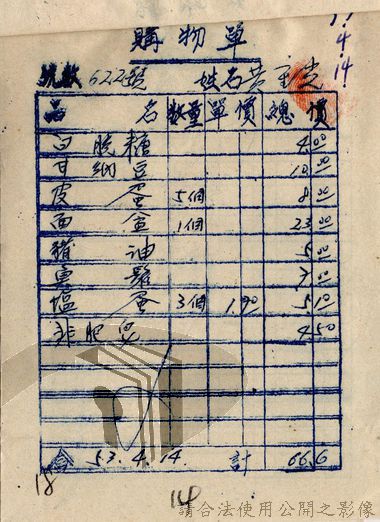 1.
4.
14.
購物單
號数 622號 姓名 黃
品名 数量 單價 總價
白脱糖 4.00
甘納豆 10.00
皮蛋 5個 8.00
面盒 1個 23.00
豬油 5.00
7.00
塩蛋 3個 1.70 5.10
非肥皂 4.50
合 53.4.14. 計 66.6
18
14
請合法使用公開之影像